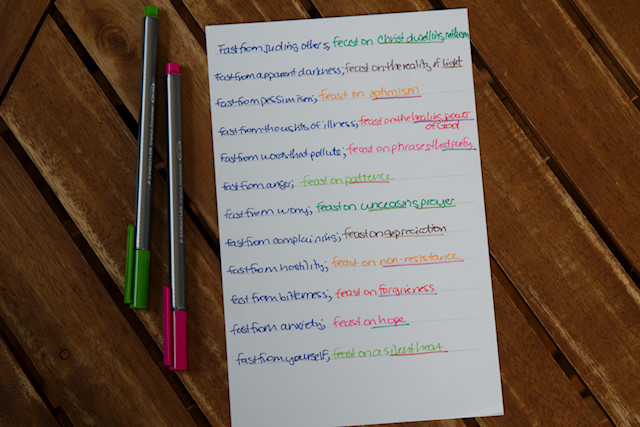 Fast from judging others; feast on Christ dwelling in them
fast from apparent darkness; feast on the reality of light
fast from pessimism; feast on optimism
fast from thoughts of illness; feast on the healing power
of God
fast from words that pollute; feast on phrases that purify
fast from anger; feast on patience
fast from worry; feast on unceasing prayer
fast from complaining; feast on appreciation
fast from hostility; feast on non-resistance
fast from bitterness; feast on forgiveness
fast from anxiety; feast on hope
fast from yourself; feast on a silent heart